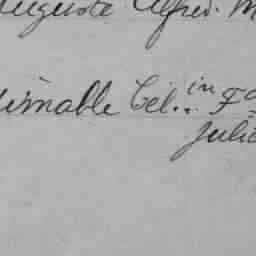 Auguste Alfred. M
Aimable Cél.. in Fa
Julie